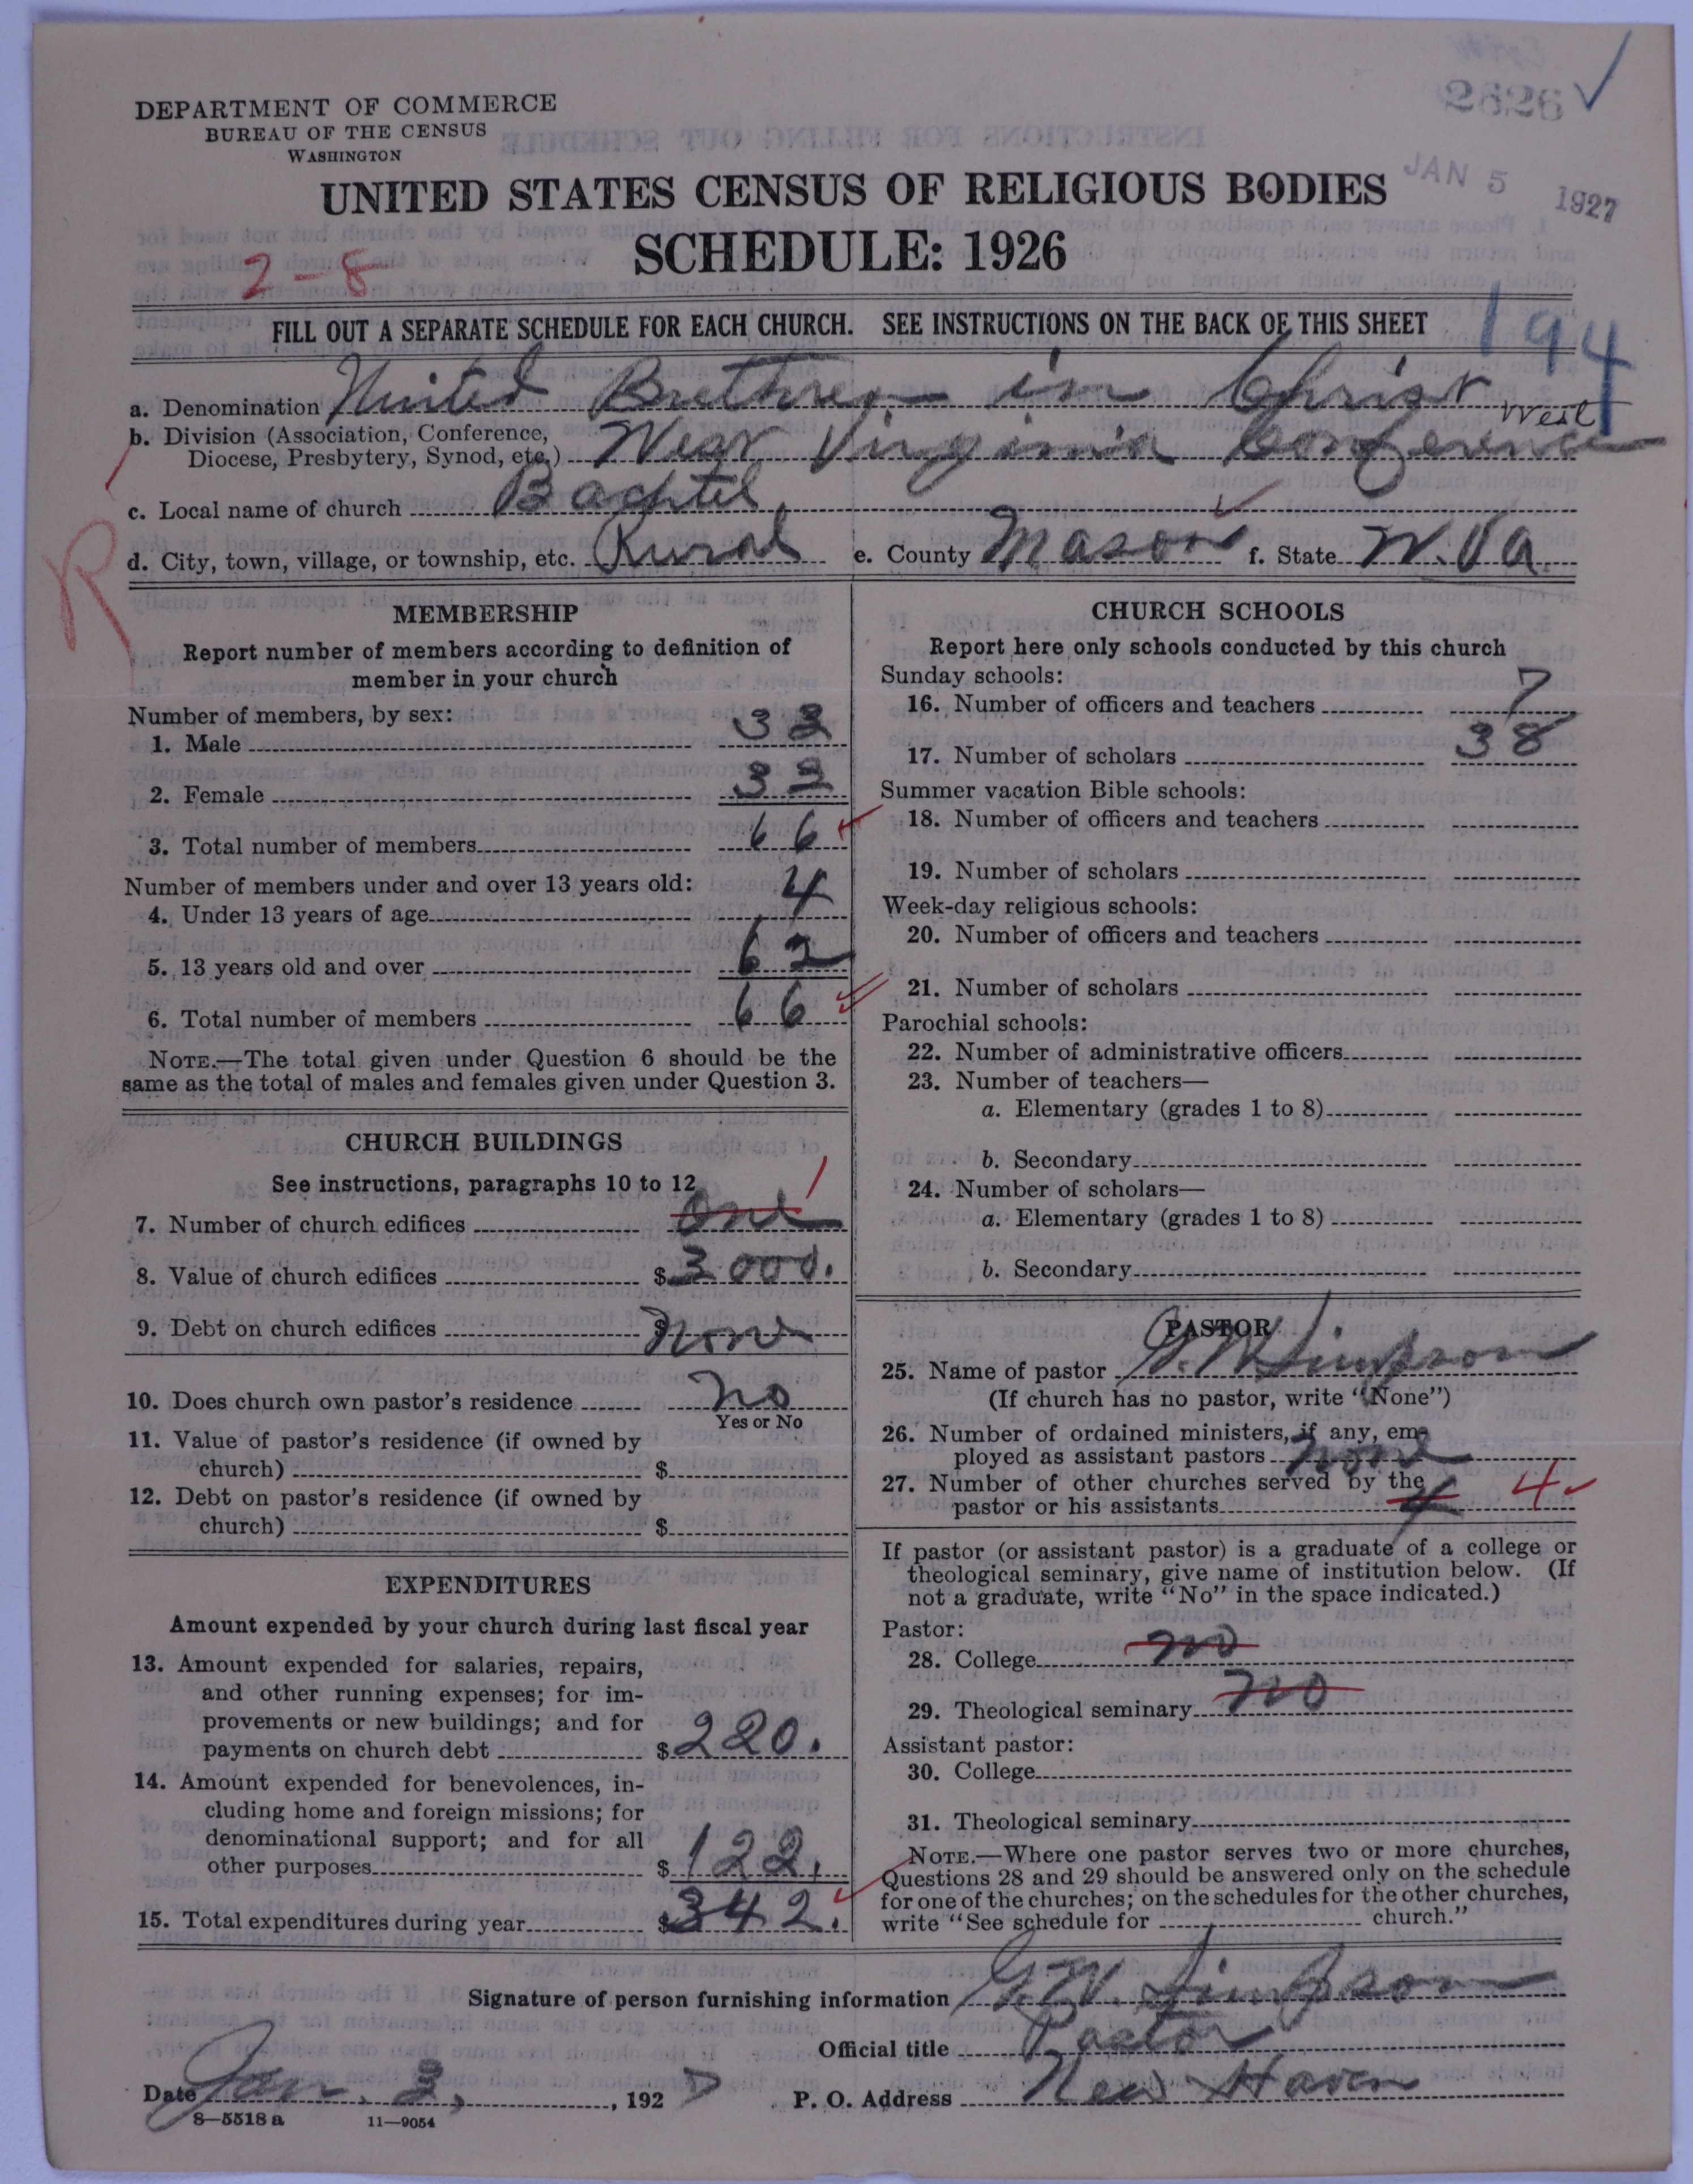 2626 ✓
DEPARTMENT OF COMMERCE
BUREAU OF THE CENSUS
WASHINGTON
JAN 5 1927
UNITED STATES CENSUS OF RELIGIOUS BODIES
SCHEDULE: 1926
2-8
FILL OUT A SEPARATE SCHEDULE FOR EACH CHURCH. SEE INSTRUCTIONS ON THE BACK OF THIS SHEET
194
a. Denomination United Brethren in Christ
West
b. Division (Association, Conference,
Diocese, Presbytery, Synod, etc.) West Virginia Conference
c. Local name of church Bachtel
d. City, town, village, or township, etc. Rural e. County Mason f. State W. Va.
R
MEMBERSHIP
Report number of members according to definition of
member in your church
Number of members, by sex:
1. Male 33
2. Female 33
3. Total number of members 66
Number of members under and over 13 years old:
4. Under 13 years of age 4
5. 13 years old and over 62
6. Total number of members 66
NOTE.—The total given under Question 6 should be the
same as the total of males and females given under Question 3.
CHURCH BUILDINGS
See instructions, paragraphs 10 to 12
7. Number of church edifices One 1
8. Value of church edifices $3000.
9. Debt on church edifices $ None
10. Does church own pastor's residence No
Yes or No
11. Value of pastor's residence (if owned by
church) $
12. Debt on pastor's residence (if owned by
church) $
EXPENDITURES
Amount expended by your church during last fiscal year
13. Amount expended for salaries, repairs,
and other running expenses; for im-
provements or new buildings; and for
payments on church debt $220.
14. Amount expended for benevolences, in-
cluding home and foreign missions; for
denominational support; and for all
other purposes $122.
15. Total expenditures during year $342.
CHURCH SCHOOLS
Report here only schools conducted by this church
Sunday schools:
16. Number of officers and teachers 7
17. Number of scholars 38
Summer vacation Bible schools:
18. Number of officers and teachers
19. Number of scholars
Week-day religious schools:
20. Number of officers and teachers
21. Number of scholars
Parochial schools:
22. Number of administrative officers
23. Number of teachers—
a. Elementary (grades 1 to 8)
b. Secondary
24. Number of scholars—
a. Elementary (grades 1 to 8)
b. Secondary
PASTOR
25. Name of pastor G. W. Simpson
(If church has no pastor, write "None")
26. Number of ordained ministers, if any, em-
ployed as assistant pastors none
27. Number of other churches served by the
pastor or his assistants 4 4
If pastor (or assistant pastor) is a graduate of a college or
theological seminary, give name of institution below. (If
not a graduate, write "No" in the space indicated.)
Pastor:
28. College no
29. Theological seminary no
Assistant pastor:
30. College
31. Theological seminary
NOTE.—Where one pastor serves two or more churches,
Questions 28 and 29 should be answered only on the schedule
for one of the churches; on the schedules for the other churches,
write "See schedule for church."
Signature of person furnishing information G. W. Simpson
Official title Pastor
Date Jan. 3, 1927 P. O. Address New Haven
8—5518 a 11—9054